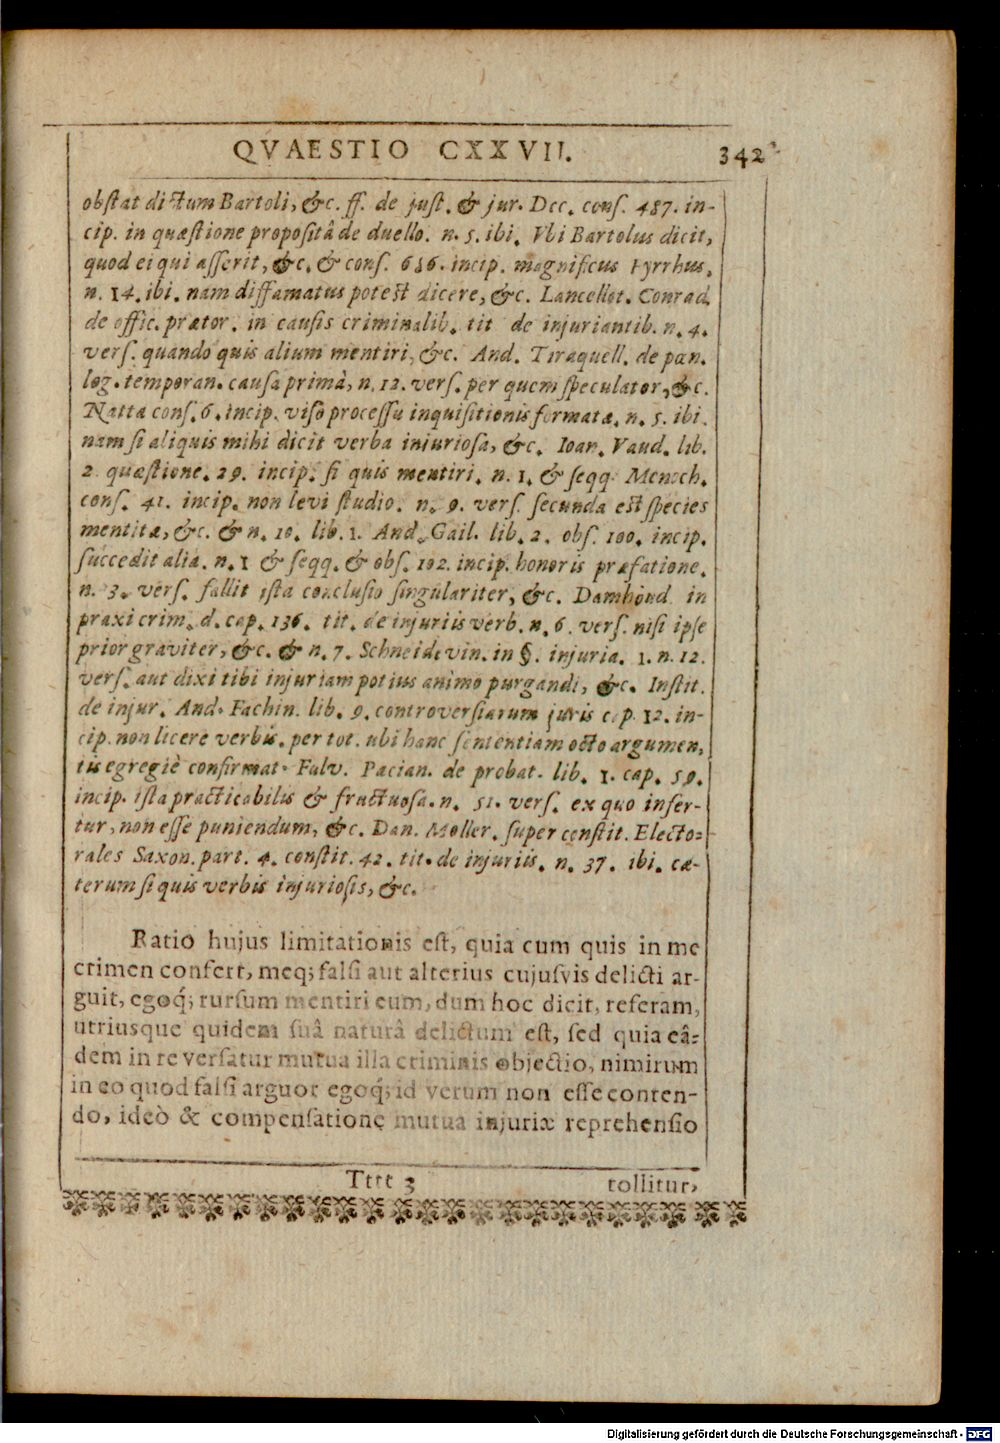 QVAESTIO CXXVII. 342
obstat dictum Bartoli, &c. ff. de just. & jur. Dec. cons. 487. in-
cip. in quæstione propositâ de duello. n. 5. ibi. Vbi Bartolus dicit,
quod ei qui asserit, &c. & cons. 656. incip. magnificus Pyrrhus.
n. 14. ibi. nam diffamatus potest dicere, &c. Lancellot. Conrad.
de offic. prætor. in causis criminalib. tit de injuriantib. n. 4.
vers. quando quis alium mentiri, &c. And. Tiraquell. de pœn.
leg. temporan. causa primâ, n. 12. vers. per quem speculator, &c.
Natta cons. 6. incip. viso processu inquisitionis formatæ. n. 5. ibi.
nam si aliquis mihi dicit verba injuriosa, &c. Ioan. Vaud. lib.
2. quæstione. 29. incip. si quis mentiri. n. 1. & seqq. Menoch.
cons. 41. incip. non levi studio. n. 9. vers. secunda est species
mentitæ, &c. & n. 10. lib. 1. And. Gail. lib. 2. obs. 100. incip.
succedit alia. n. 1 & seqq. & obs. 102. incip. honoris præfatione.
n. 3. vers. fallit ista conclusio singulariter, &c. Damhoud. in
praxi crim. d. cap. 136. tit. de injuriis verb. n. 6. vers. nisi ipse
prior graviter, &c. & n. 7. Schneidevin. in §. injuria. 1. n. 12.
vers. aut dixi tibi injuriam potius animo purgandi, &c. Instit.
de injur. And. Fachin. lib. 9. controversiarum juris cap. 12. in-
cip. non licere verbis. per tot. ubi hanc sententiam octo argumen,
tis egregiè confirmat. Fulv. Pacian. de probat. lib. 1. cap. 59.
incip. ista practicabilis & fructuosa. n. 51. vers. ex quo infer-
tur, non esse puniendum, &c. Dan. Moller. super constit. Electo-
rales Saxon. part. 4. constit. 42. tit. de injuriis. n. 37. ibi. cæ-
terum si quis verbis injuriosis, &c.
Ratio hujus limitationis est, quia cum quis in me
crimen confert, meq; falsi aut alterius cujusvis delicti ar-
guit, egoq́; rursum mentiri eum, dum hoc dicit, referam,
utriusque quidem suâ naturâ delictum est, sed quia eâ-
dem in re versatur mutua illa criminis objectio, nimirum
in eo quod falsi arguor egoq́; id verum non esse conten-
do, ideò & compensatione mutua injuriæ reprehensio
Tttt 3 tollitur,
Digitalisierung gefördert durch die Deutsche Forschungsgemeinschaft - DFG